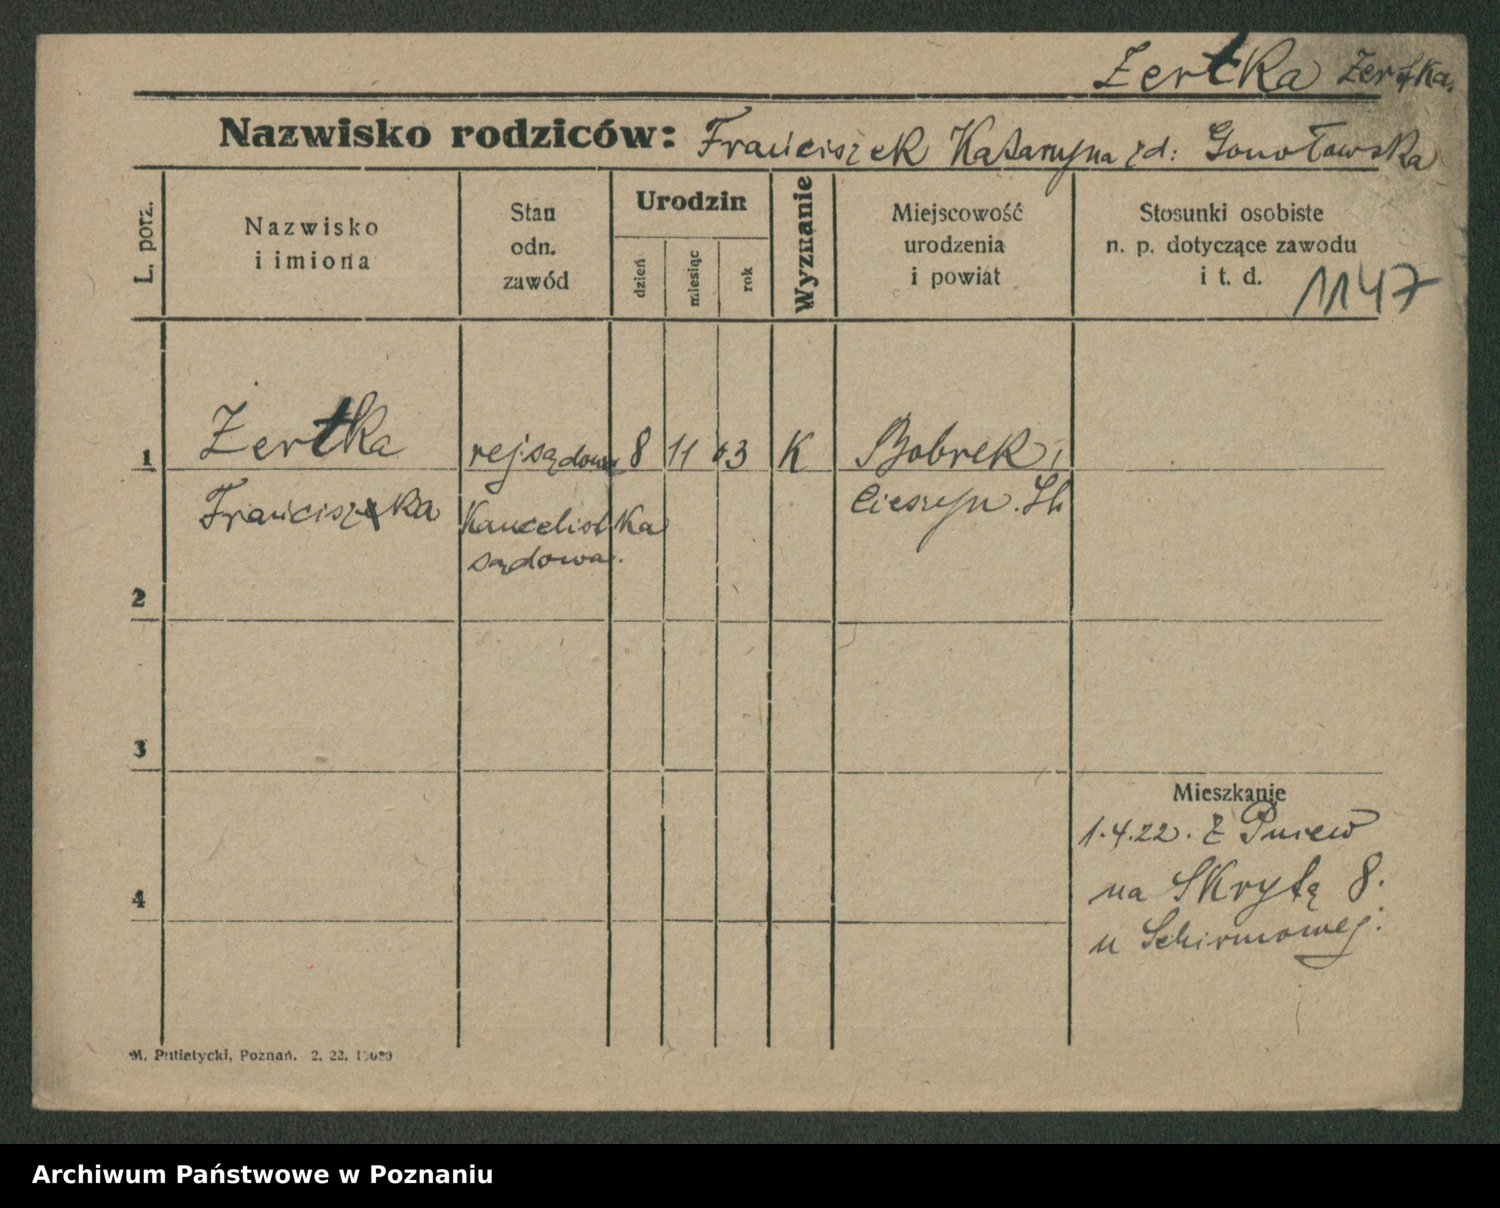 Zertka Zertka.
Nazwisko rodziców: Franciszek Katarzyna zd:
L. porz.
Nazwisko i imiona
Stan odn. zawód
Urodzin
dzień
miesiąc
rok
Wyznanie
Miejscowość urodzenia i powiat
Stosunki osobiste n. p. dotyczące zawodu i t. d.
1147
1 Zertka rej. sądowa 8 11 03 K Bobrek
Franciszka Kancelistka Cieszyn.
sądowa.
2
3
Mieszkanie
1.4.22. z Pniew
4
na Skrytą 8.
u Schirmowej.
M. Putiatycki, Poznań. 2. 22.
Archiwum Państwowe w Poznaniu